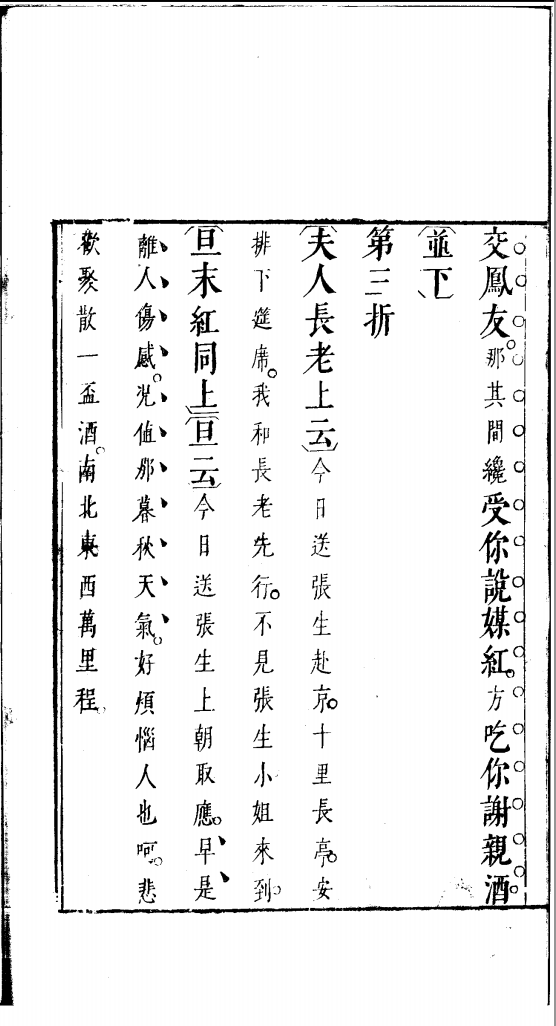 交鳳友。那其間纔受你說媒紅。方吃你謝親酒。
〔並下〕
第三折
〔夫人長老上云〕今日送張生赴京。十里長亭。安
排下筵席。我和長老先行。不見張生小姐來到。
〔旦末紅同上〕〔旦云〕今日送張生上朝取應。早是
離人傷感。况值那暮秋天氣。好煩惱人也呵。悲
歡聚散一盃酒。南北東西萬里程。